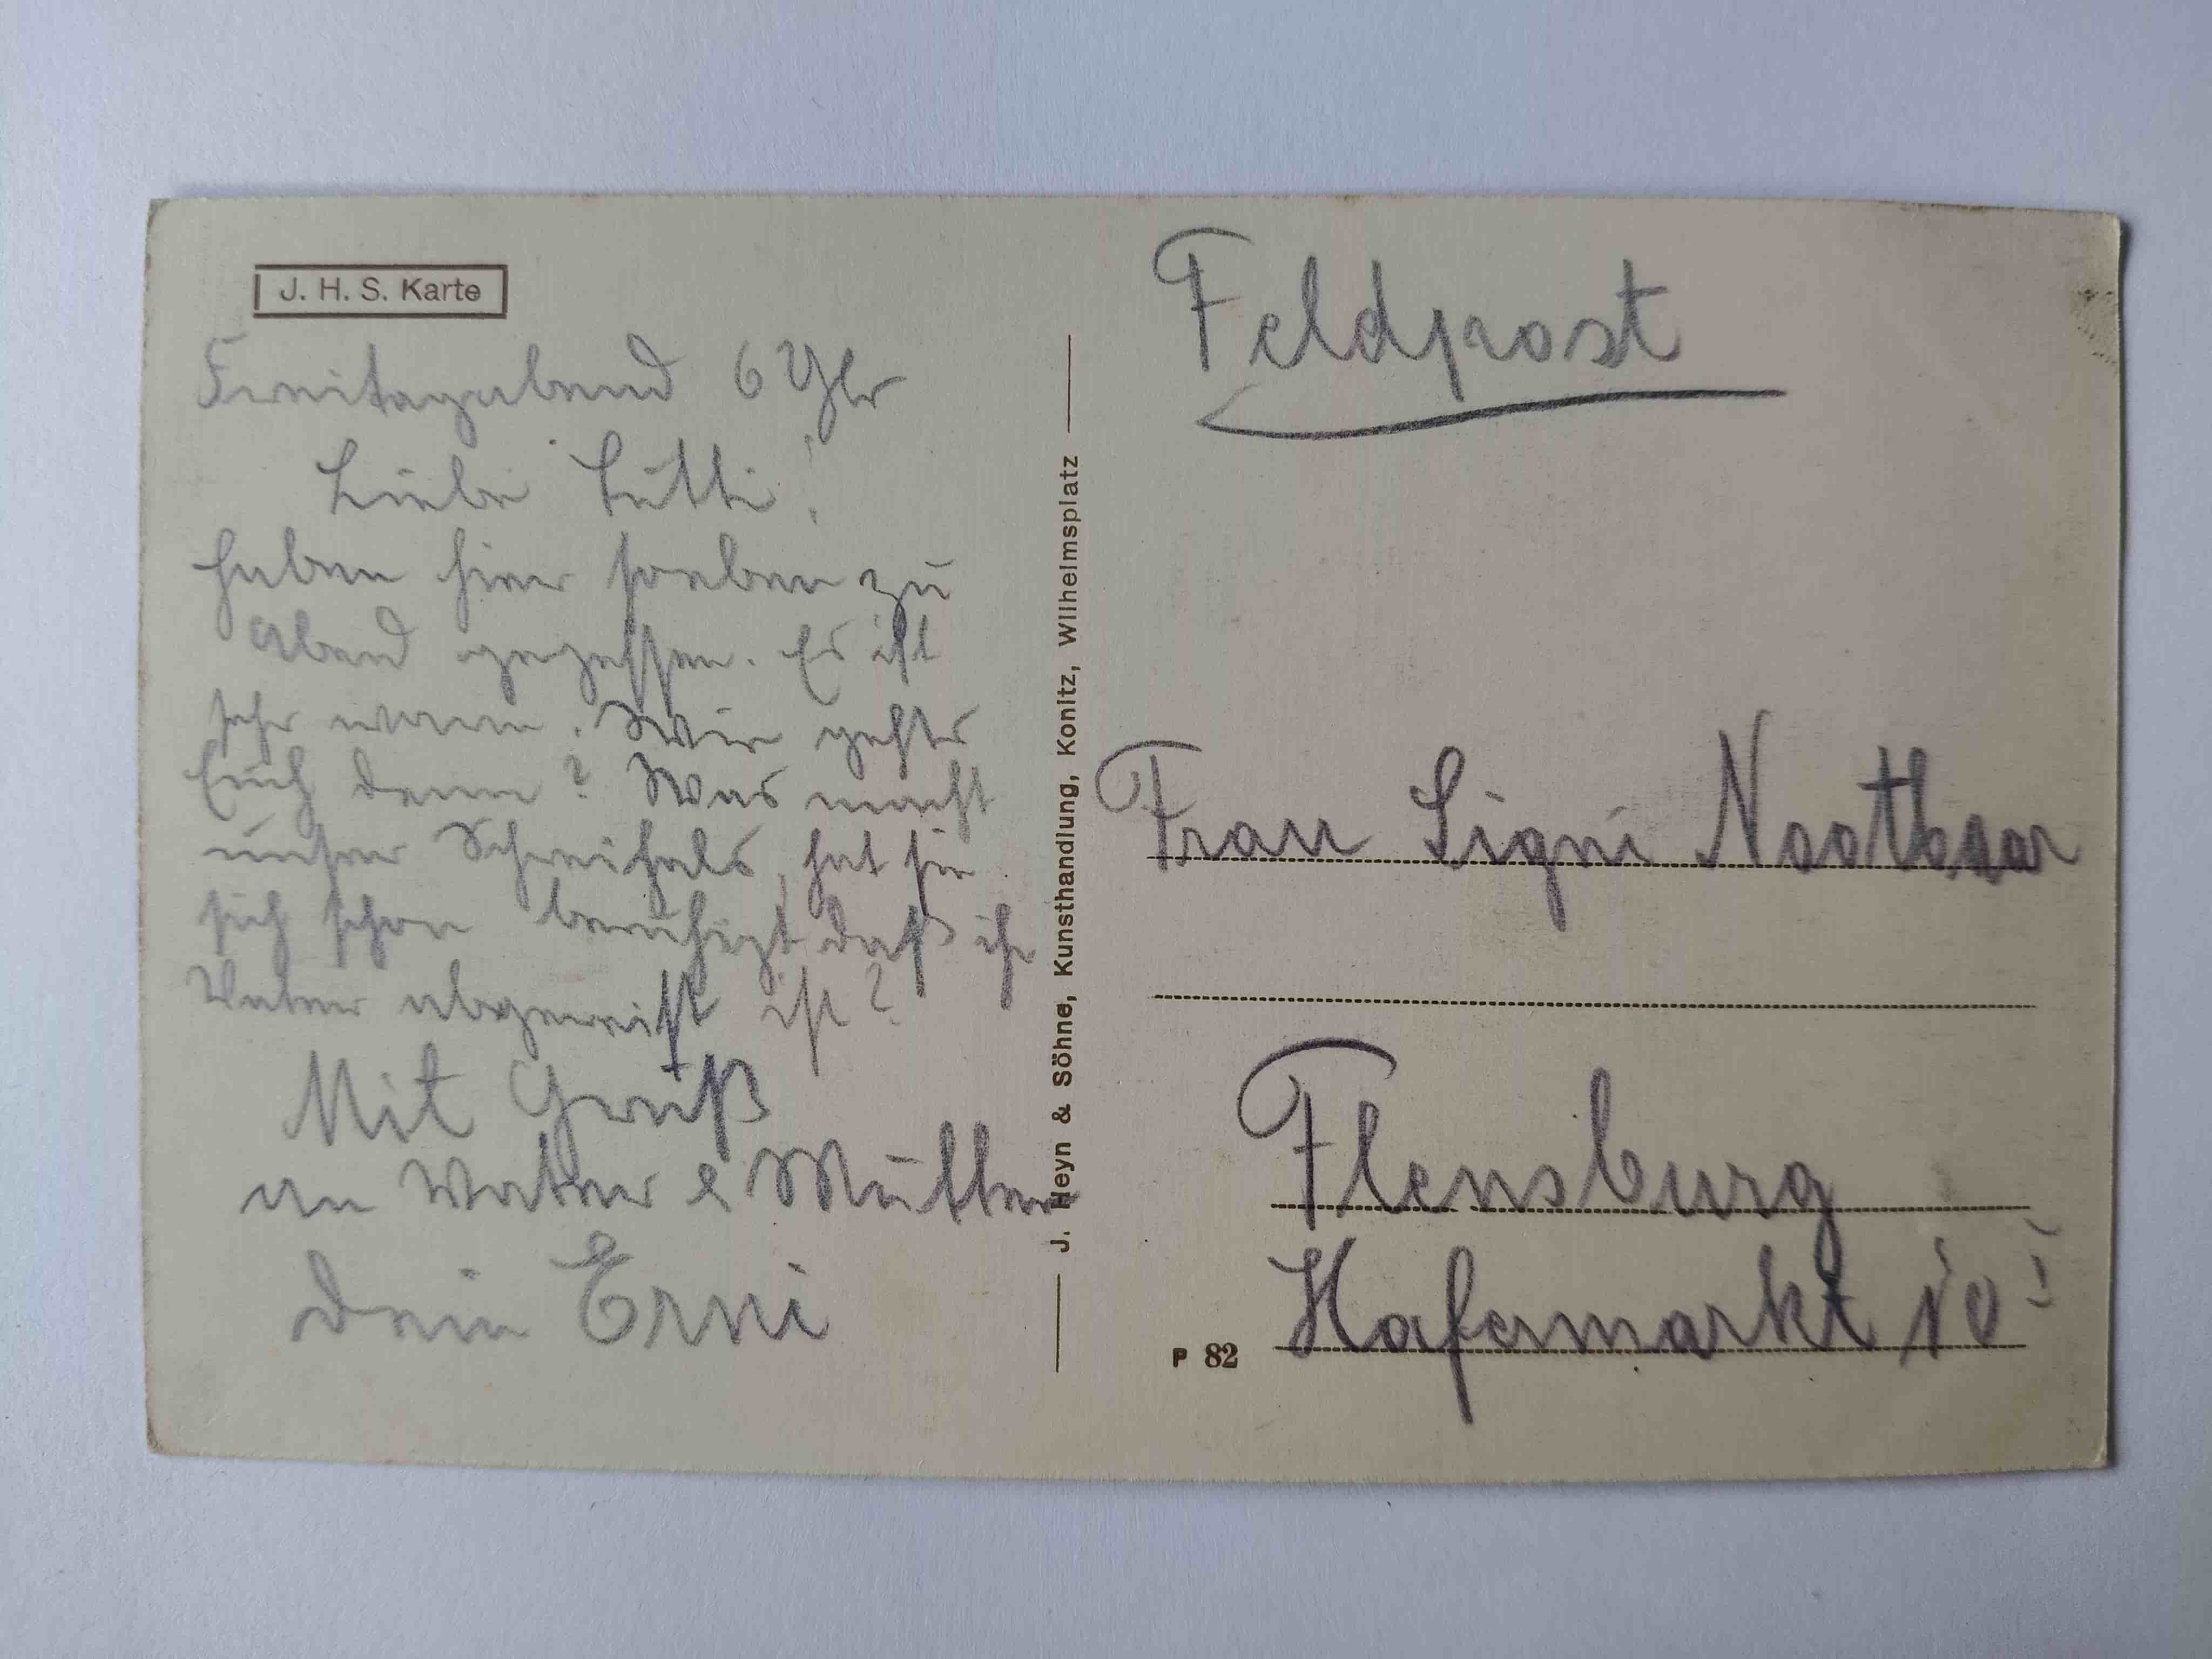 J. H. S. Karte
Freitagabend 6 Uhr
Liebe Lütti!
haben hier soeben zu
Abend gegessen. Es ist
sehr warm. Wie gehts
Euch denn? Was macht
unser Schreihals, hat sie
sich schon beruhigt daß ihr
Vater abgereist ist?
Mit Gruß
an Vater & Mutter
Dein Erni
J. Heyn & Söhne, Kunsthandlung, Konitz, Wilhelmsplatz
Feldpost
Frau Signi Nootbaar
Flensburg
Hafermarkt 10 I
P 82